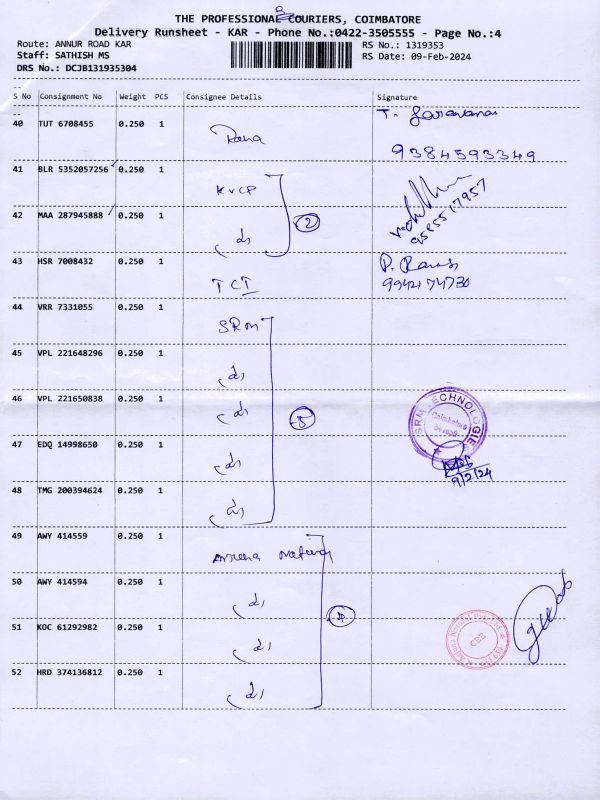 THE PROFESSIONAL COURIERS, COIMBATORE
Delivery Runsheet - KAR - Phone No.:0422-3505555 - Page No.:4
Route: ANNUR ROAD KAR
RS No.: 1319353
Staff: SATHISH MS
RS Date: 09-Feb-2024
DRS No.: DCJB131935304
S No Consignment No Weight PCS Consignee Details Signature
40 TUT 6708455 0.250 1 T. Saravanan
9384593349
41 BLR 5352057256 0.250 1 KVCP
9585517957
42 MAA 287945888 0.250 1 2
43 HSR 7008432 0.250 1 TCT
9942174730
44 VRR 7331055 0.250 1 SRM
45 VPL 221648296 0.250 1
46 VPL 221650838 0.250 1 5
SRM TECHNOLOGIE
Coimbatore
47 EDQ 14998650 0.250 1
9/2/24
48 TMG 200394624 0.250 1
49 AWY 414559 0.250 1
50 AWY 414594 0.250 1
51 KOC 61292982 0.250 1
CBE
52 HRD 374136812 0.250 1